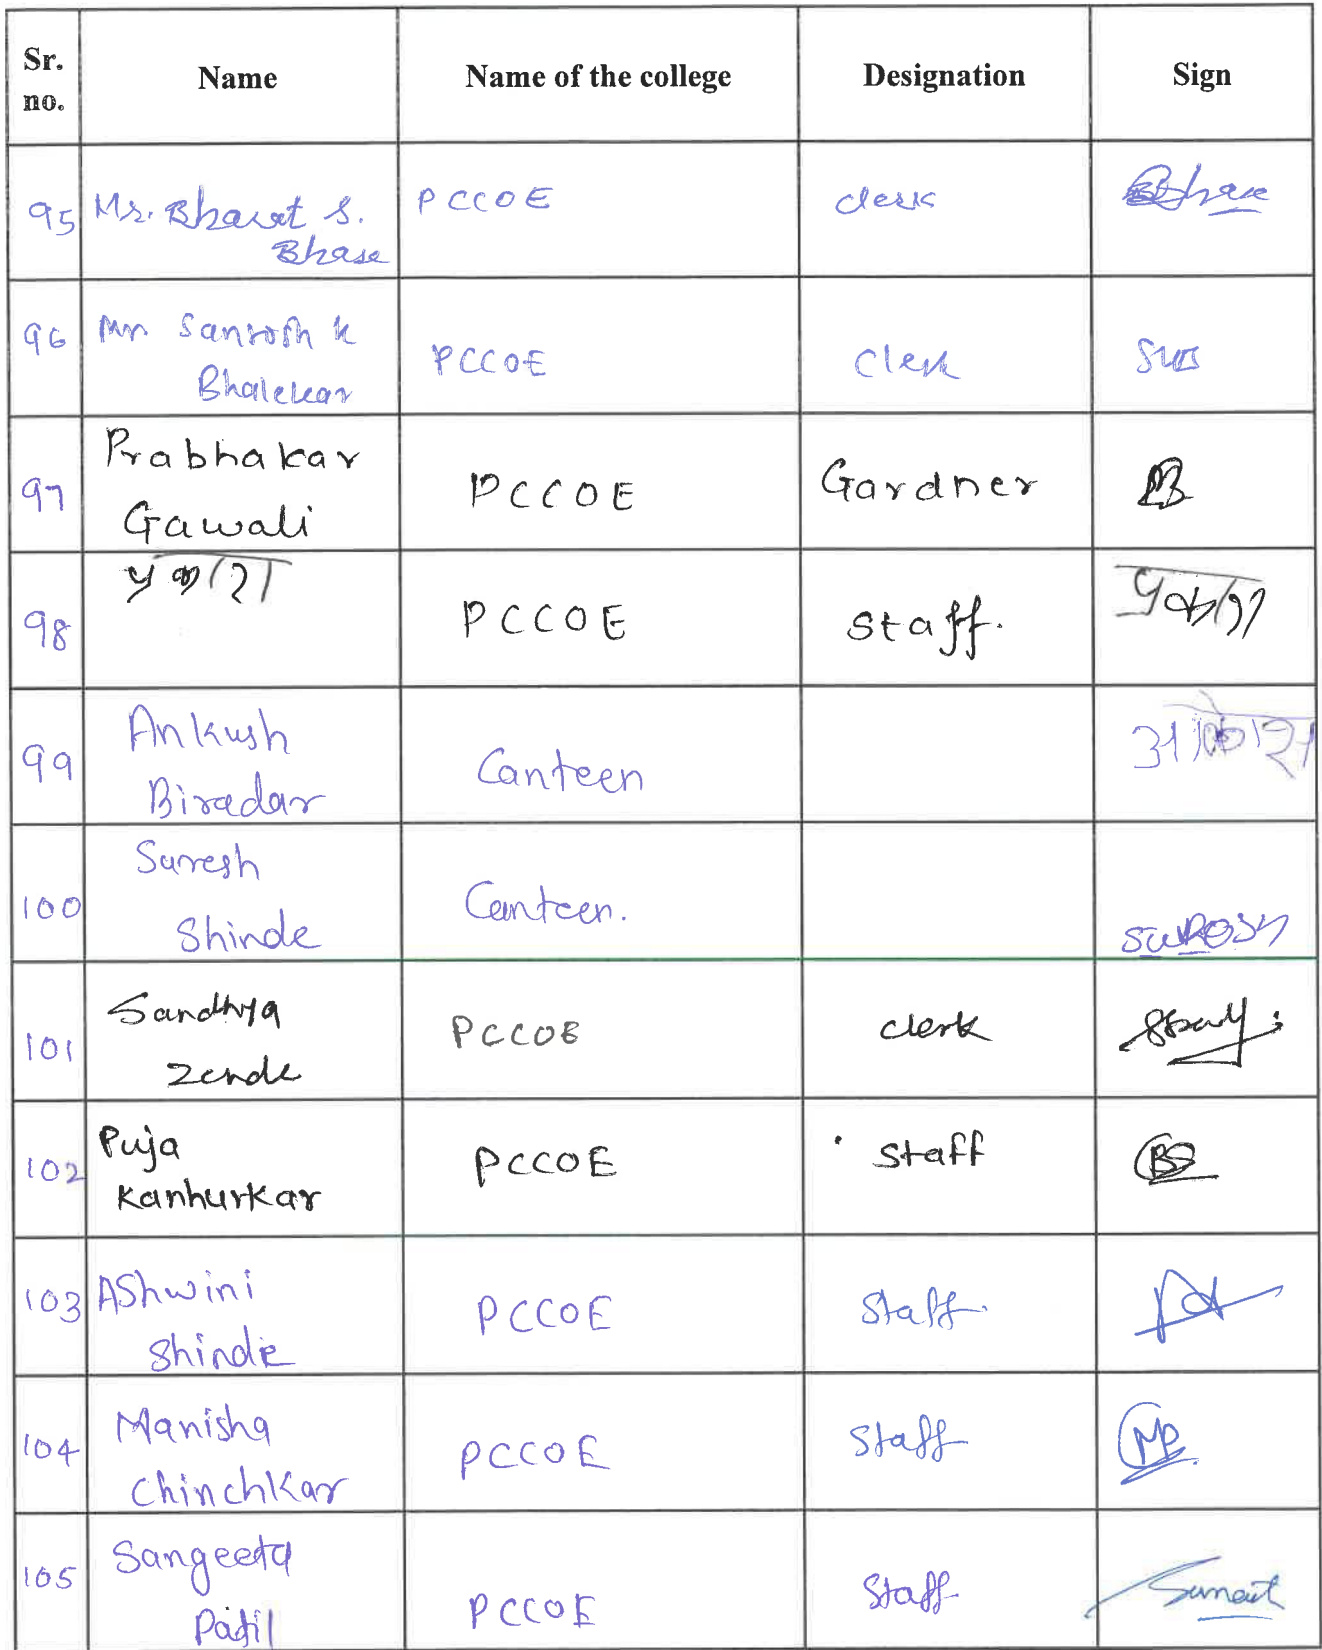 Sr. no. Name Name of the college Designation Sign
95 Mr. Bharat S. Bhase PCCOE clerk Bhase
96 Mr Santosh k Bhalekar PCCOE Clerk
97 Prabhakar Gawali PCCOE Gardner
98 प्रकाश PCCOE Staff. प्रकाश
99 Ankush Biradar Canteen
100 Suresh Shinde Canteen.
101 Sandhya Zende PCCOE clerk
102 Puja Kanhurkar PCCOE Staff
103 AShwini Shinde PCCOE Staff.
104 Manisha ChinchKar PCCOE Staff MP
105 Sangeeta Patil PCCOE Staff